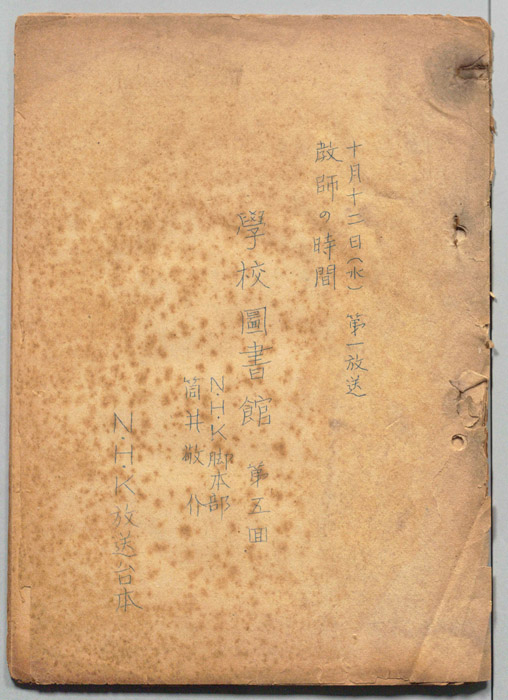 十月十二日(水) 第一放送
教師の時間
學校圖書館 第五回
N.H.K脚本部
筒井敬介
N.H.K放送台本